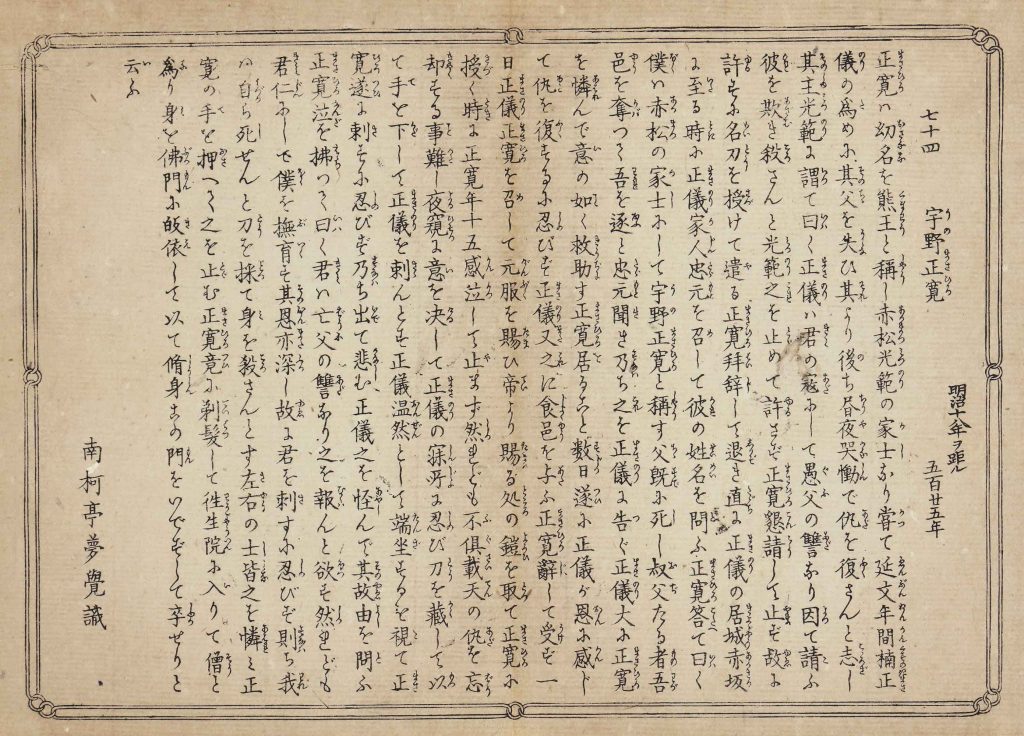 明治十年ヲ距ル 五百廿五年
七十四 宇野正寛
正寛ハ幼名を熊王と稱し赤松光範の家士なり嘗て延文年間楠正
儀の爲めに其父を失ひ其より後ち昼夜哭慟て仇を復さんと志し
其主光範に謂て曰く正儀ハ君の寇にして愚父の讐なり因て請ふ
彼を欺き殺さんと光範之を止めて許さず正寛懇請して止ず故に
許すに名刀を授けて遣る正寛拜辞して退き直に正儀の居城赤坂
に至る時に正儀家人忠元を召して彼の姓名を問ふ正寛答て曰く
僕ハ赤松の家士にして宇野正寛と稱す父既に死し叔父たる者吾
邑を奪つて吾を逐と忠元聞き乃ち之を正儀に告ぐ正儀大に正寛
を憐んで意の如く救助す正寛居ること数日遂に正儀が恩に感じ
て仇を復するに忍びず正儀又之に食邑を与ふ正寛辭して受ず一
日正儀正寛を召して元服を賜ひ帝より賜る処の鎧を取て正寛に
授く時に正寛年十五感泣して止まず然れども不倶載天の仇を忘
却する事難し夜窺に意を决して正儀の寐所に忍び刀を藏して以
て手を下して正儀を刺んとす正儀温然として端坐するを視て正
寛遂に刺すに忍びず乃ち出て悲む正儀之を怪んで其故由を問ふ
正寛泣を拂つて曰く君ハ亡父の讐なり之を報んと欲す然れども
君仁にして僕を撫育す其恩亦深し故に君を刺すに忍びず則ち我
ハ自ら死せんと刀を採て身を殺さんとす左右の士皆之を憐ミ正
寛の手を押へて之を止む正寛竟に剃髪して徃生院に入りて僧と
為り身を佛門に皈依して以て脩身この門をいでずして卒せりと
云ふ
南柯亭夢覺識